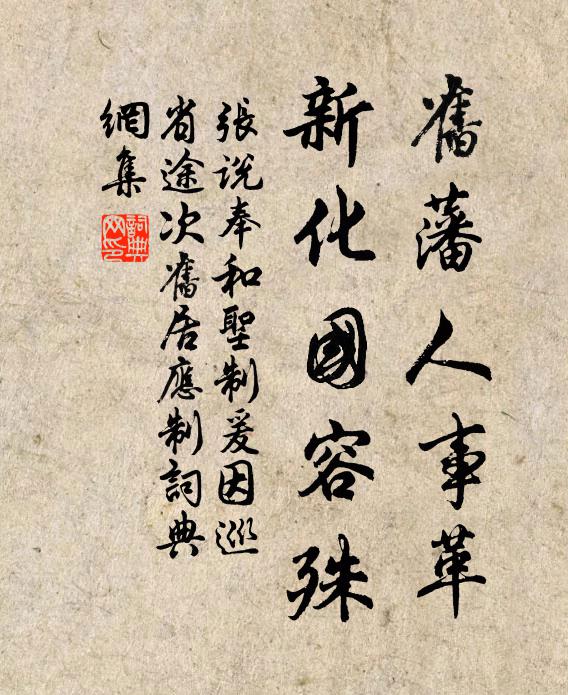 舊藩人事革
新化國容殊
張說奉和聖制爰因巡
省途次舊居應制詞典
網集
詞典
网印